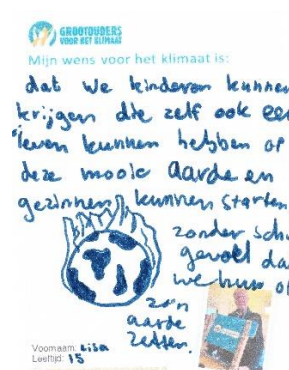 GROOTOUDERS
VOOR HET KLIMAAT
Mijn wens voor het klimaat is:
dat we kinderen kunnen
krijgen die zelf ook een
leven kunnen hebben op
deze mooie aarde en
gezinnen kunnen starten
zonder
gevoel
we hun op
zo'n
aarde
zetten.
Voornaam: Lisa
Leeftijd: 15